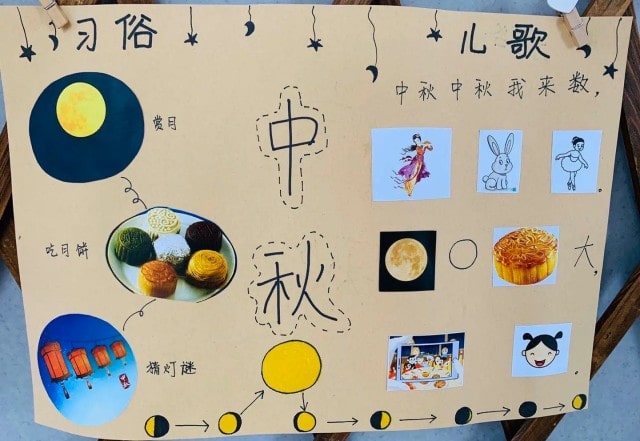 习俗
赏月
吃月饼
猜灯谜
中
秋
儿歌
中秋中秋我来数，
。
○
大，
。